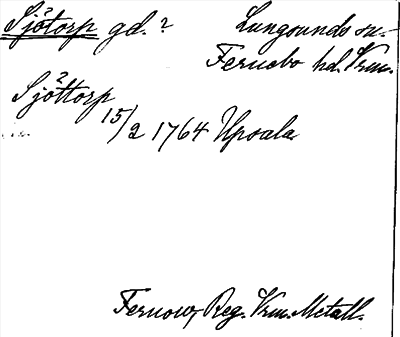 Sjötorp gd.? Lungsunds sn.
Fernebo hd. Vrm.
?
Sjöttorp
15/2 1764 Upsala
Fernow, Reg. Vrm. Metall.